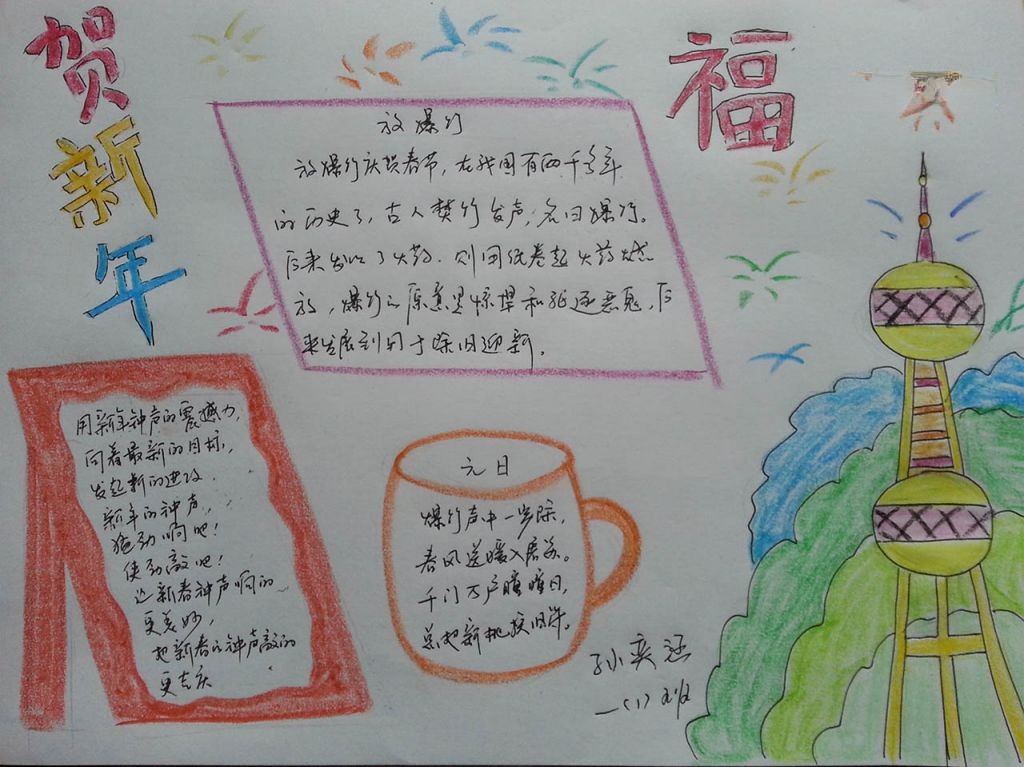 贺新年
福
放爆竹
放爆竹庆贺春节,在我国有两千多年
的历史了,古人焚竹发声,名曰爆竹。
后来发明了火药.则用纸卷起火药燃
放,爆竹的原意是惊吓和驱逐恶鬼,后
来发展到用于除旧迎新。
用新年钟声的震撼力,
向着最新的目标,
发起新的进攻.
新年的钟声,
猛劲响吧!
使劲敲吧!
让新春钟声响的
更美妙,
把新春的钟声敲的
更吉庆
元日
爆竹声中一岁除,
春风送暖入屠苏。
千门万户曈曈日,
总把新桃换旧符。
孙奕涵
一(1)班